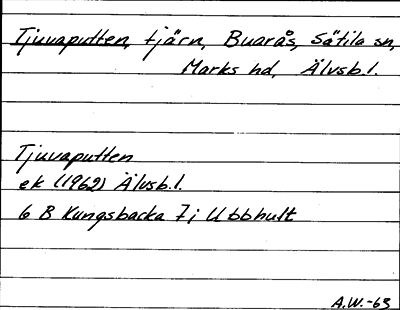 Tjuvaputten, tjärn, Buarås, Sätila sn,
Marks hd, Älvsb.l.
Tjuvaputten
ek (1962) Älvsb.l.
6 B Kungsbacka 7j Ubbhult
A.W.-63